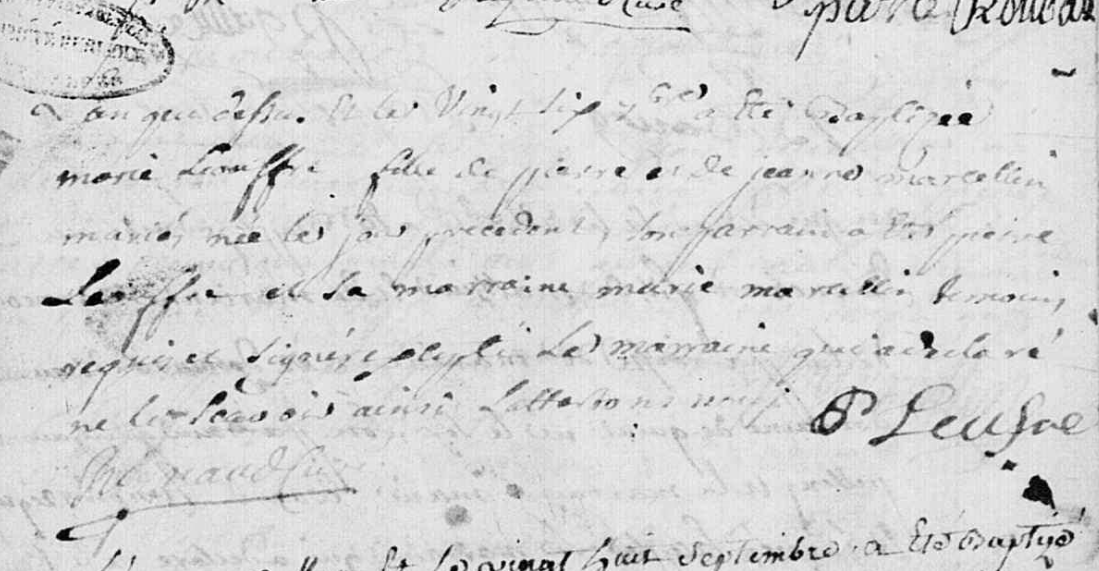 curé par le
L'an que dessus et le vingt six 7bre a été Baptizée
marie Leouffre fille de pierre et de jeanne marcellin
mariés née le jour precedent, son parrain a été pierre
Leouffre et la marraine marie marcellin temoins
requis et signés la marraine qui a declaré
ne le sçavoir ainsi l'attestons nous P Leufre
curé
et le vingt huit septembre a été Baptizé